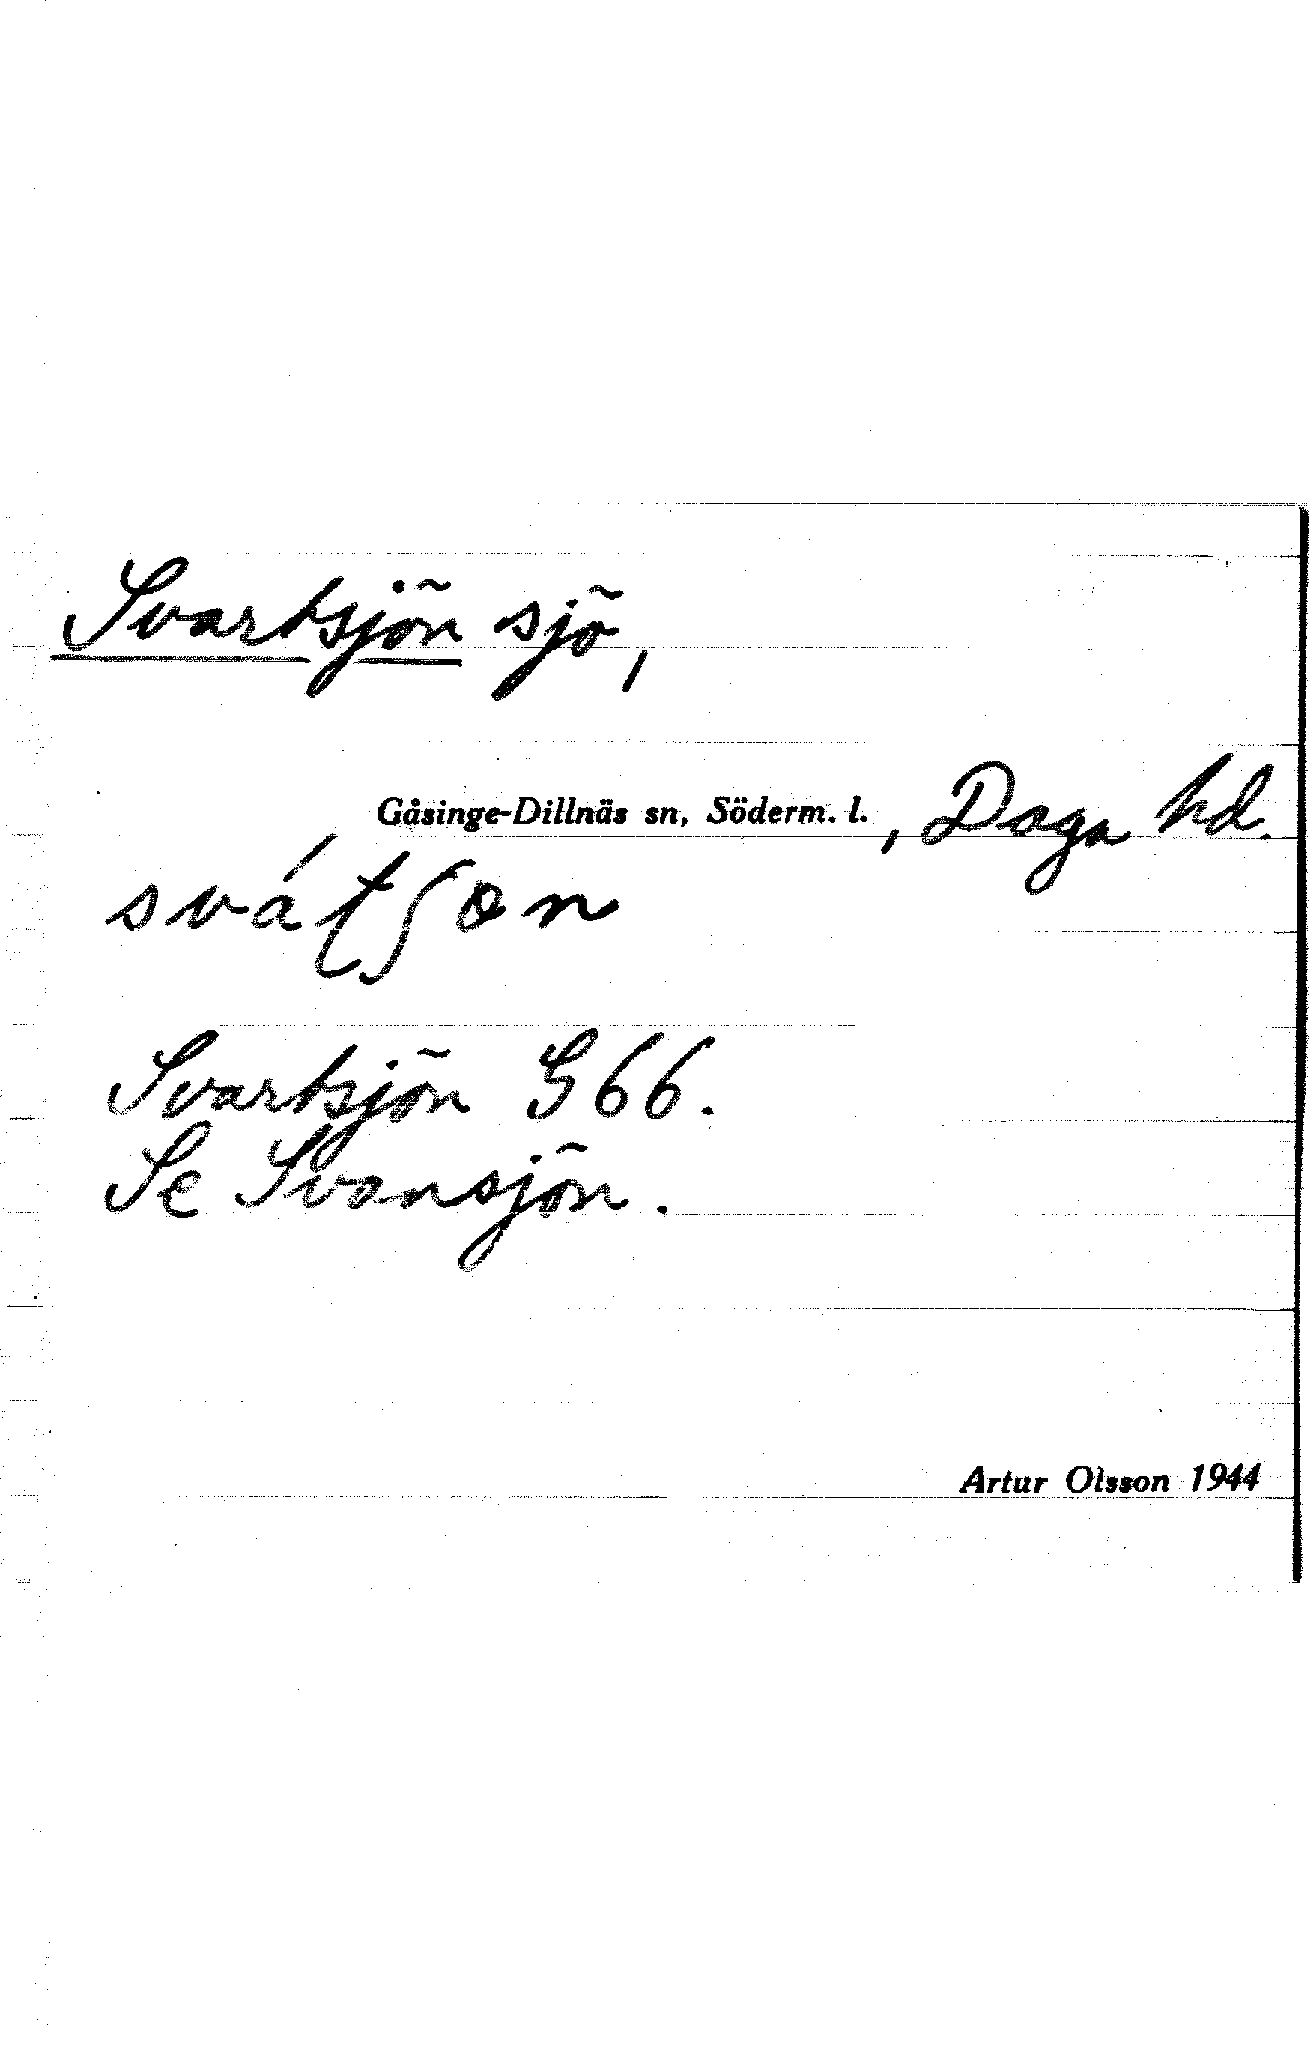 Svartsjön sjö,
Gåsinge-Dillnäs sn, Söderm. l., Daga hd.
svátʃøn
Svartsjön G66.
Se Svansjön.
Artur Olsson 1944